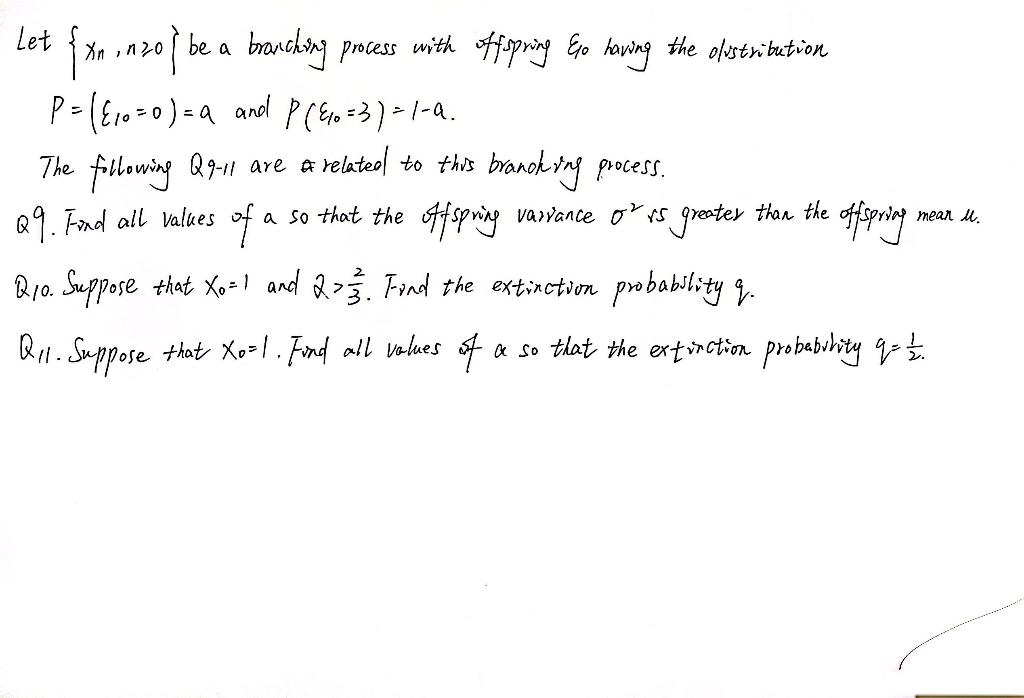 Let {Xn, n≥0} be a branching process with offspring ξ10 having the distribution
P=(ξ10=0)=a and P(ξ10=3)=1-a.
The following Q9-11 are related to this branching process.
Q9. Find all values of a so that the offspring variance σ² is greater than the offspring mean u.
Q10. Suppose that X0=1 and 2>2/3. Find the extinction probability q.
Q11. Suppose that X0=1. Find all values of a so that the extinction probability q=1/2.